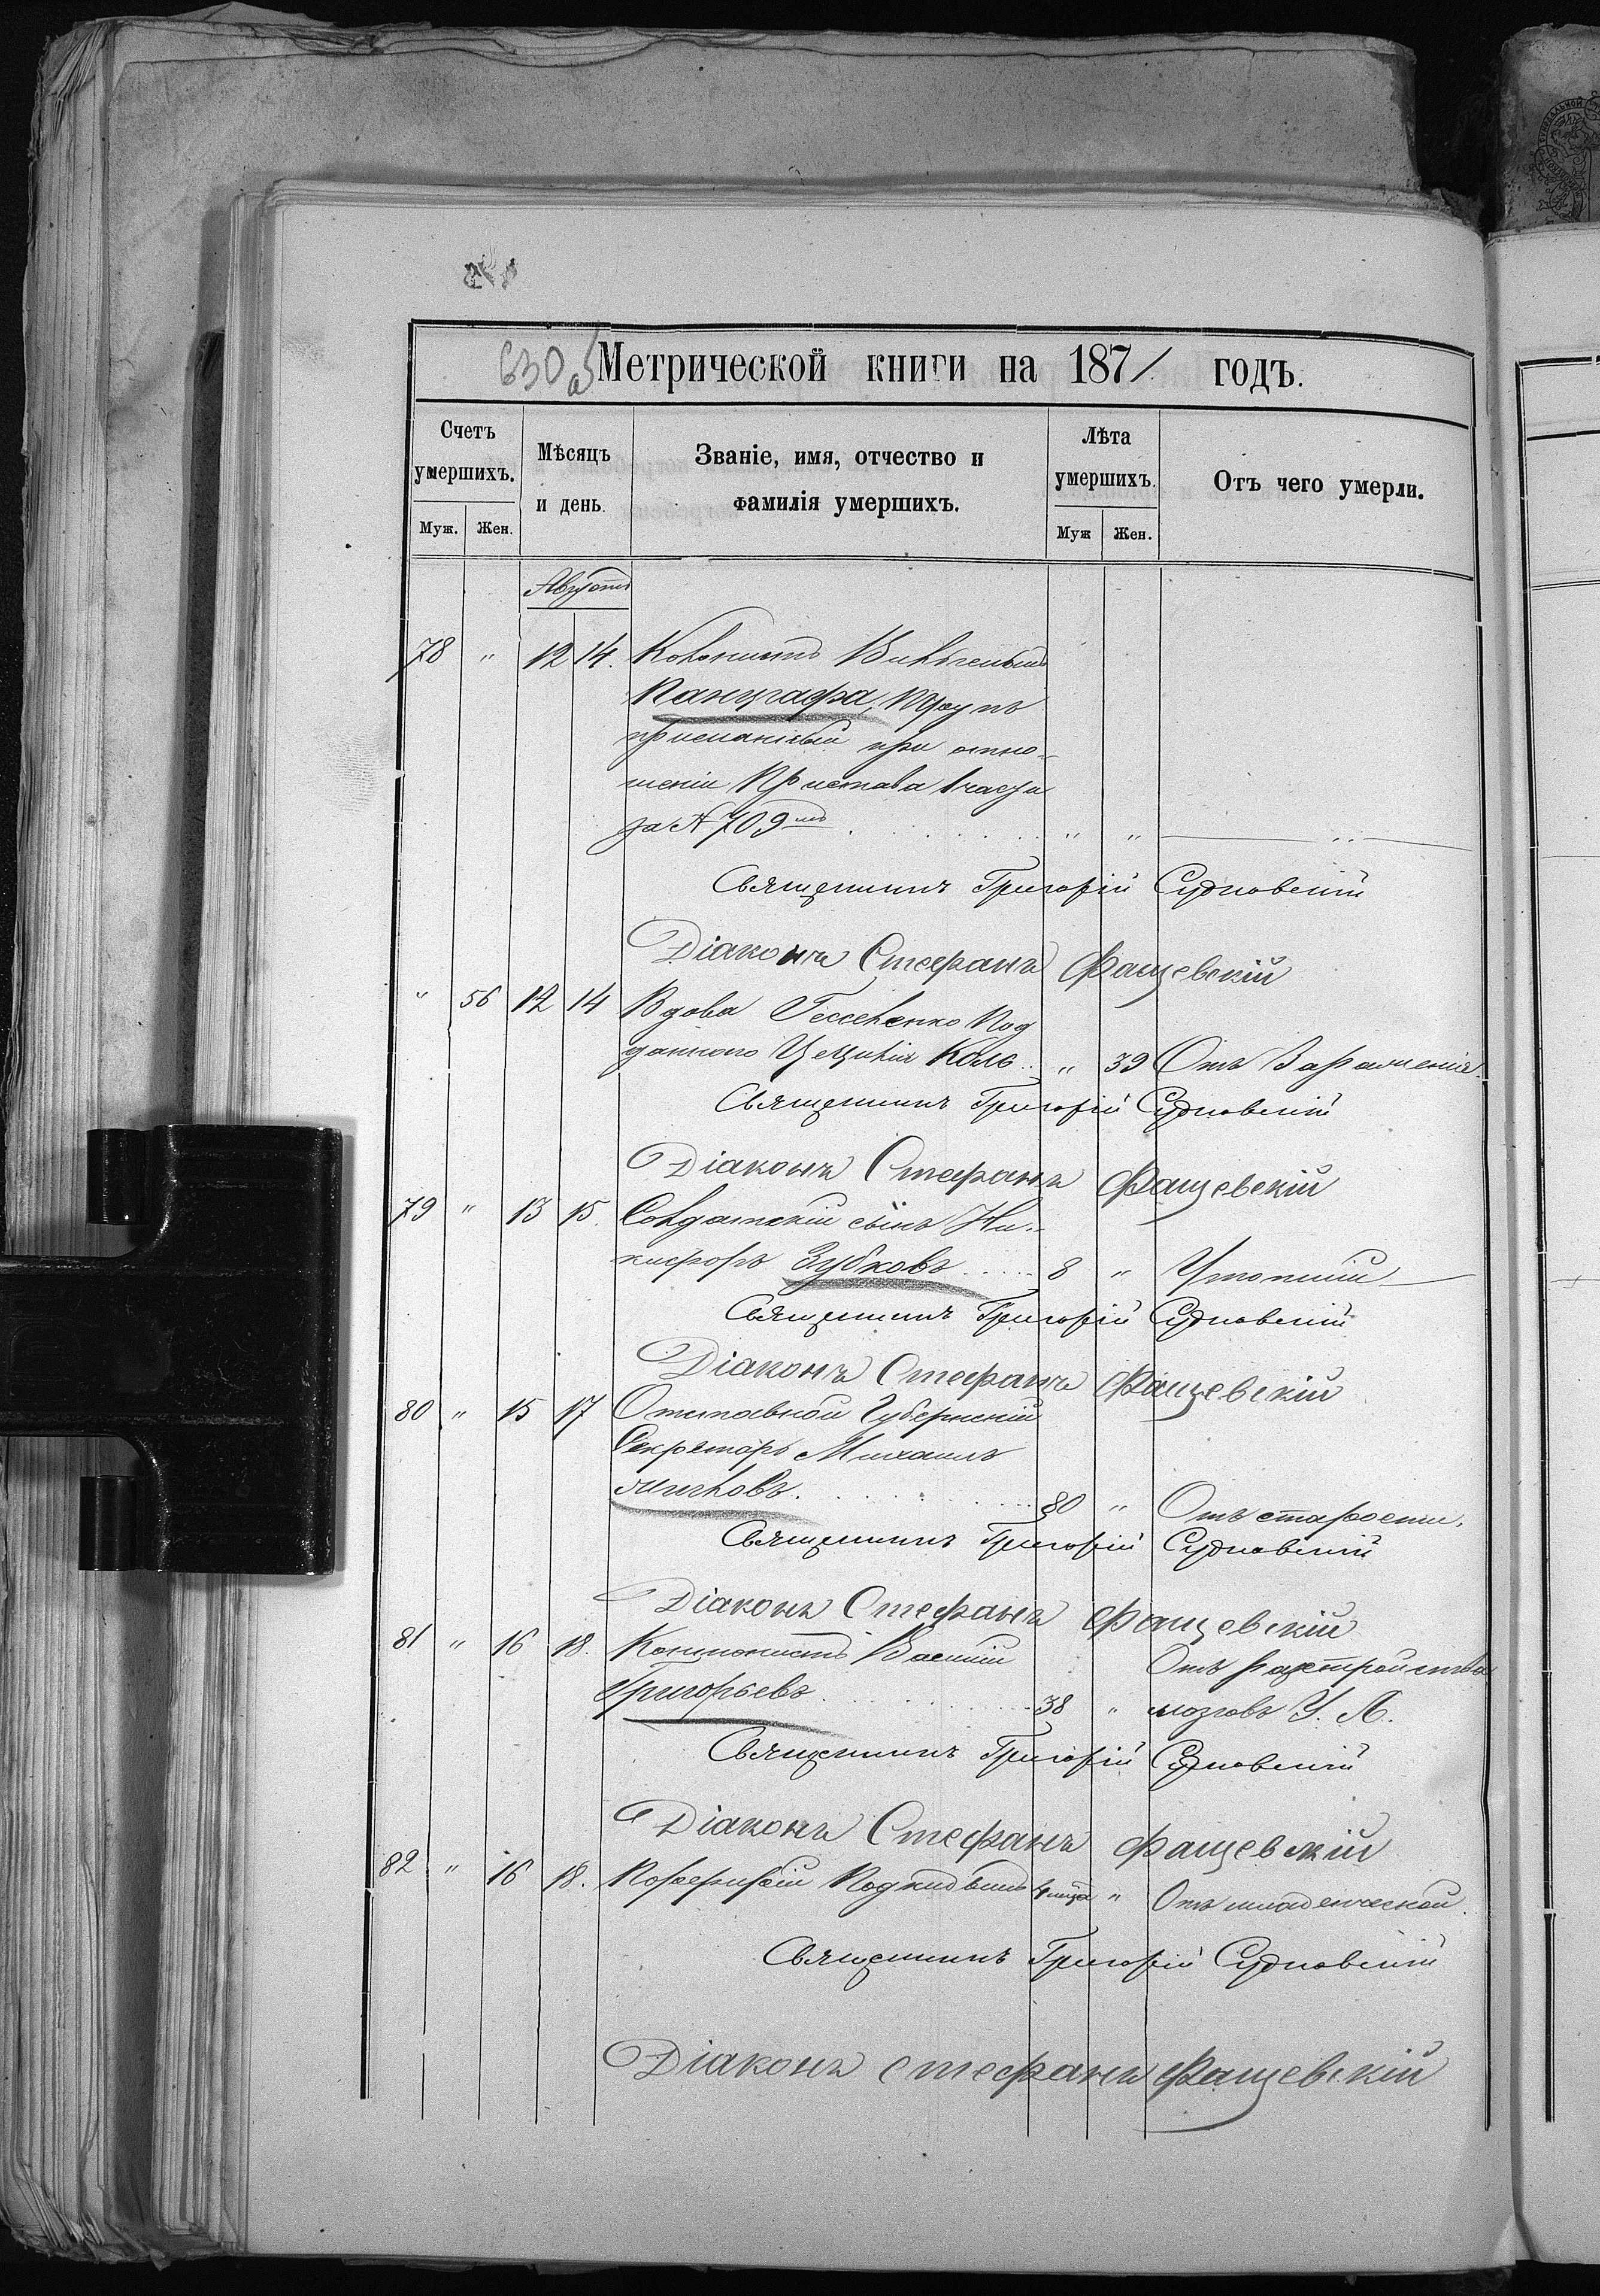 630 об
Метрической книги на 1871 годъ.
Счетъ умершихъ.
Муж. Жен.
Мѣсяцъ и день.
Званіе, имя, отчество и фамилія умершихъ.
Лѣта умершихъ.
Муж Жен.
Отъ чего умерли.
Августъ
78 " 12 14. Колонистъ Вильгельмъ
Панцграфа, Трупъ
присланный при отно-
шеніи Пристава 1 части
за № 709 " "
Священникъ Григорій Судковскій
Діаконъ Стефанъ Фащевскій
" 56 12 14 Вдова Гессенско Под
даннаго Цецилія Коль .. " 39 Отъ Воспаленія
Священникъ Григорій Судковскій
Діаконъ Стефанъ Фащевскій
79 " 13 15. Солдатскій сынъ Ни-
кифоръ Зубковъ 8 " Утопшій
Священникъ Григорій Судковскій
Діаконъ Стефанъ Фащевскій
80 " 15 17 Отставной Губернскій
Секретарь Михаилъ
80 " Отъ старости.
Священникъ Григорій Судковскій
Діаконъ Стефанъ Фащевскій
81 " 16 18. Василій Отъ разстройства
Григорьевъ 38 " мозговъ
Священникъ Григорій Судковскій
Діаконъ Стефанъ Фащевскій
82 " 16 18. Порфирій Подкидышъ 4 мѣся " Отъ младенческой.
Священникъ Григорій Судковскій
Діаконъ Стефанъ Фащевскій